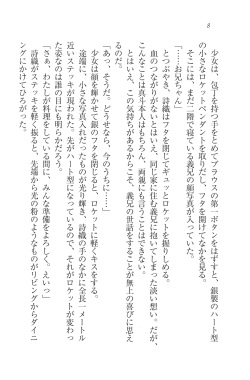 8
少女は、包丁を持つ手をとめてブラウスの第一ボタンをはずすと、銀製のハート型
の小さなロケットペンダントを取りだし、フタを開けてなかを見る。
そこには、まだ二階で寝ている義兄の顔写真が入っていた。
「……お兄ちゃん」
とつぶやき、詩織はフタを閉じてギュッとロケットを握りしめる。
血のつながりがないとはいえ、同じ家に住む義兄に抱いてしまった淡い想い。だが、
こんなことは真斗本人はもちろん、両親にも言うことはできない。
とはいえ、この気持ちがあるからこそ、義兄の世話をすることが無上の喜びに思え
るのだ。
「あっ、そうだ、どうせなら、今のうちに……」
少女は顔を輝かせて銀のフタを閉じると、ロケットに軽くキスをする。
途端に、小さな写真入れだったものが光り輝き、詩織の手のなかに全長一メートル
近いステッキが現れた。先がハート型になっているので、それがロケットが変わっ
た姿なのは誰の目にも明らかだ。
「さぁ、わたしが料理をしている間に、みんな準備をよろしく。えいっ」
詩織がステッキを軽く振ると、先端から光の粉のようなものがリビングからダイニ
ングにかけてひろがった。